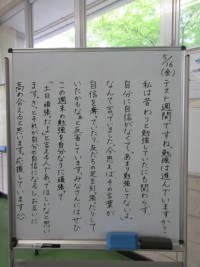 5/16(金)
テスト週間ですね。勉強は進んでいますか?
私は昔わりと勉強していたにも関わらず
自分に自信がなくて「あまり勉強してないよ。」
なんて言っていました。今思えばその言葉が
自信を奪っていたり、友だちの足を引っ張ったりして
いたかもなぁと反省しています。みなさんにはぜひ
この週末の勉強を自分なりに頑張って
「土日頑張ったよ」と言える人であってほしいなと思い
ます。きっとそれが自分の自信になるし、お互いに
高め合えると思います。応援しています